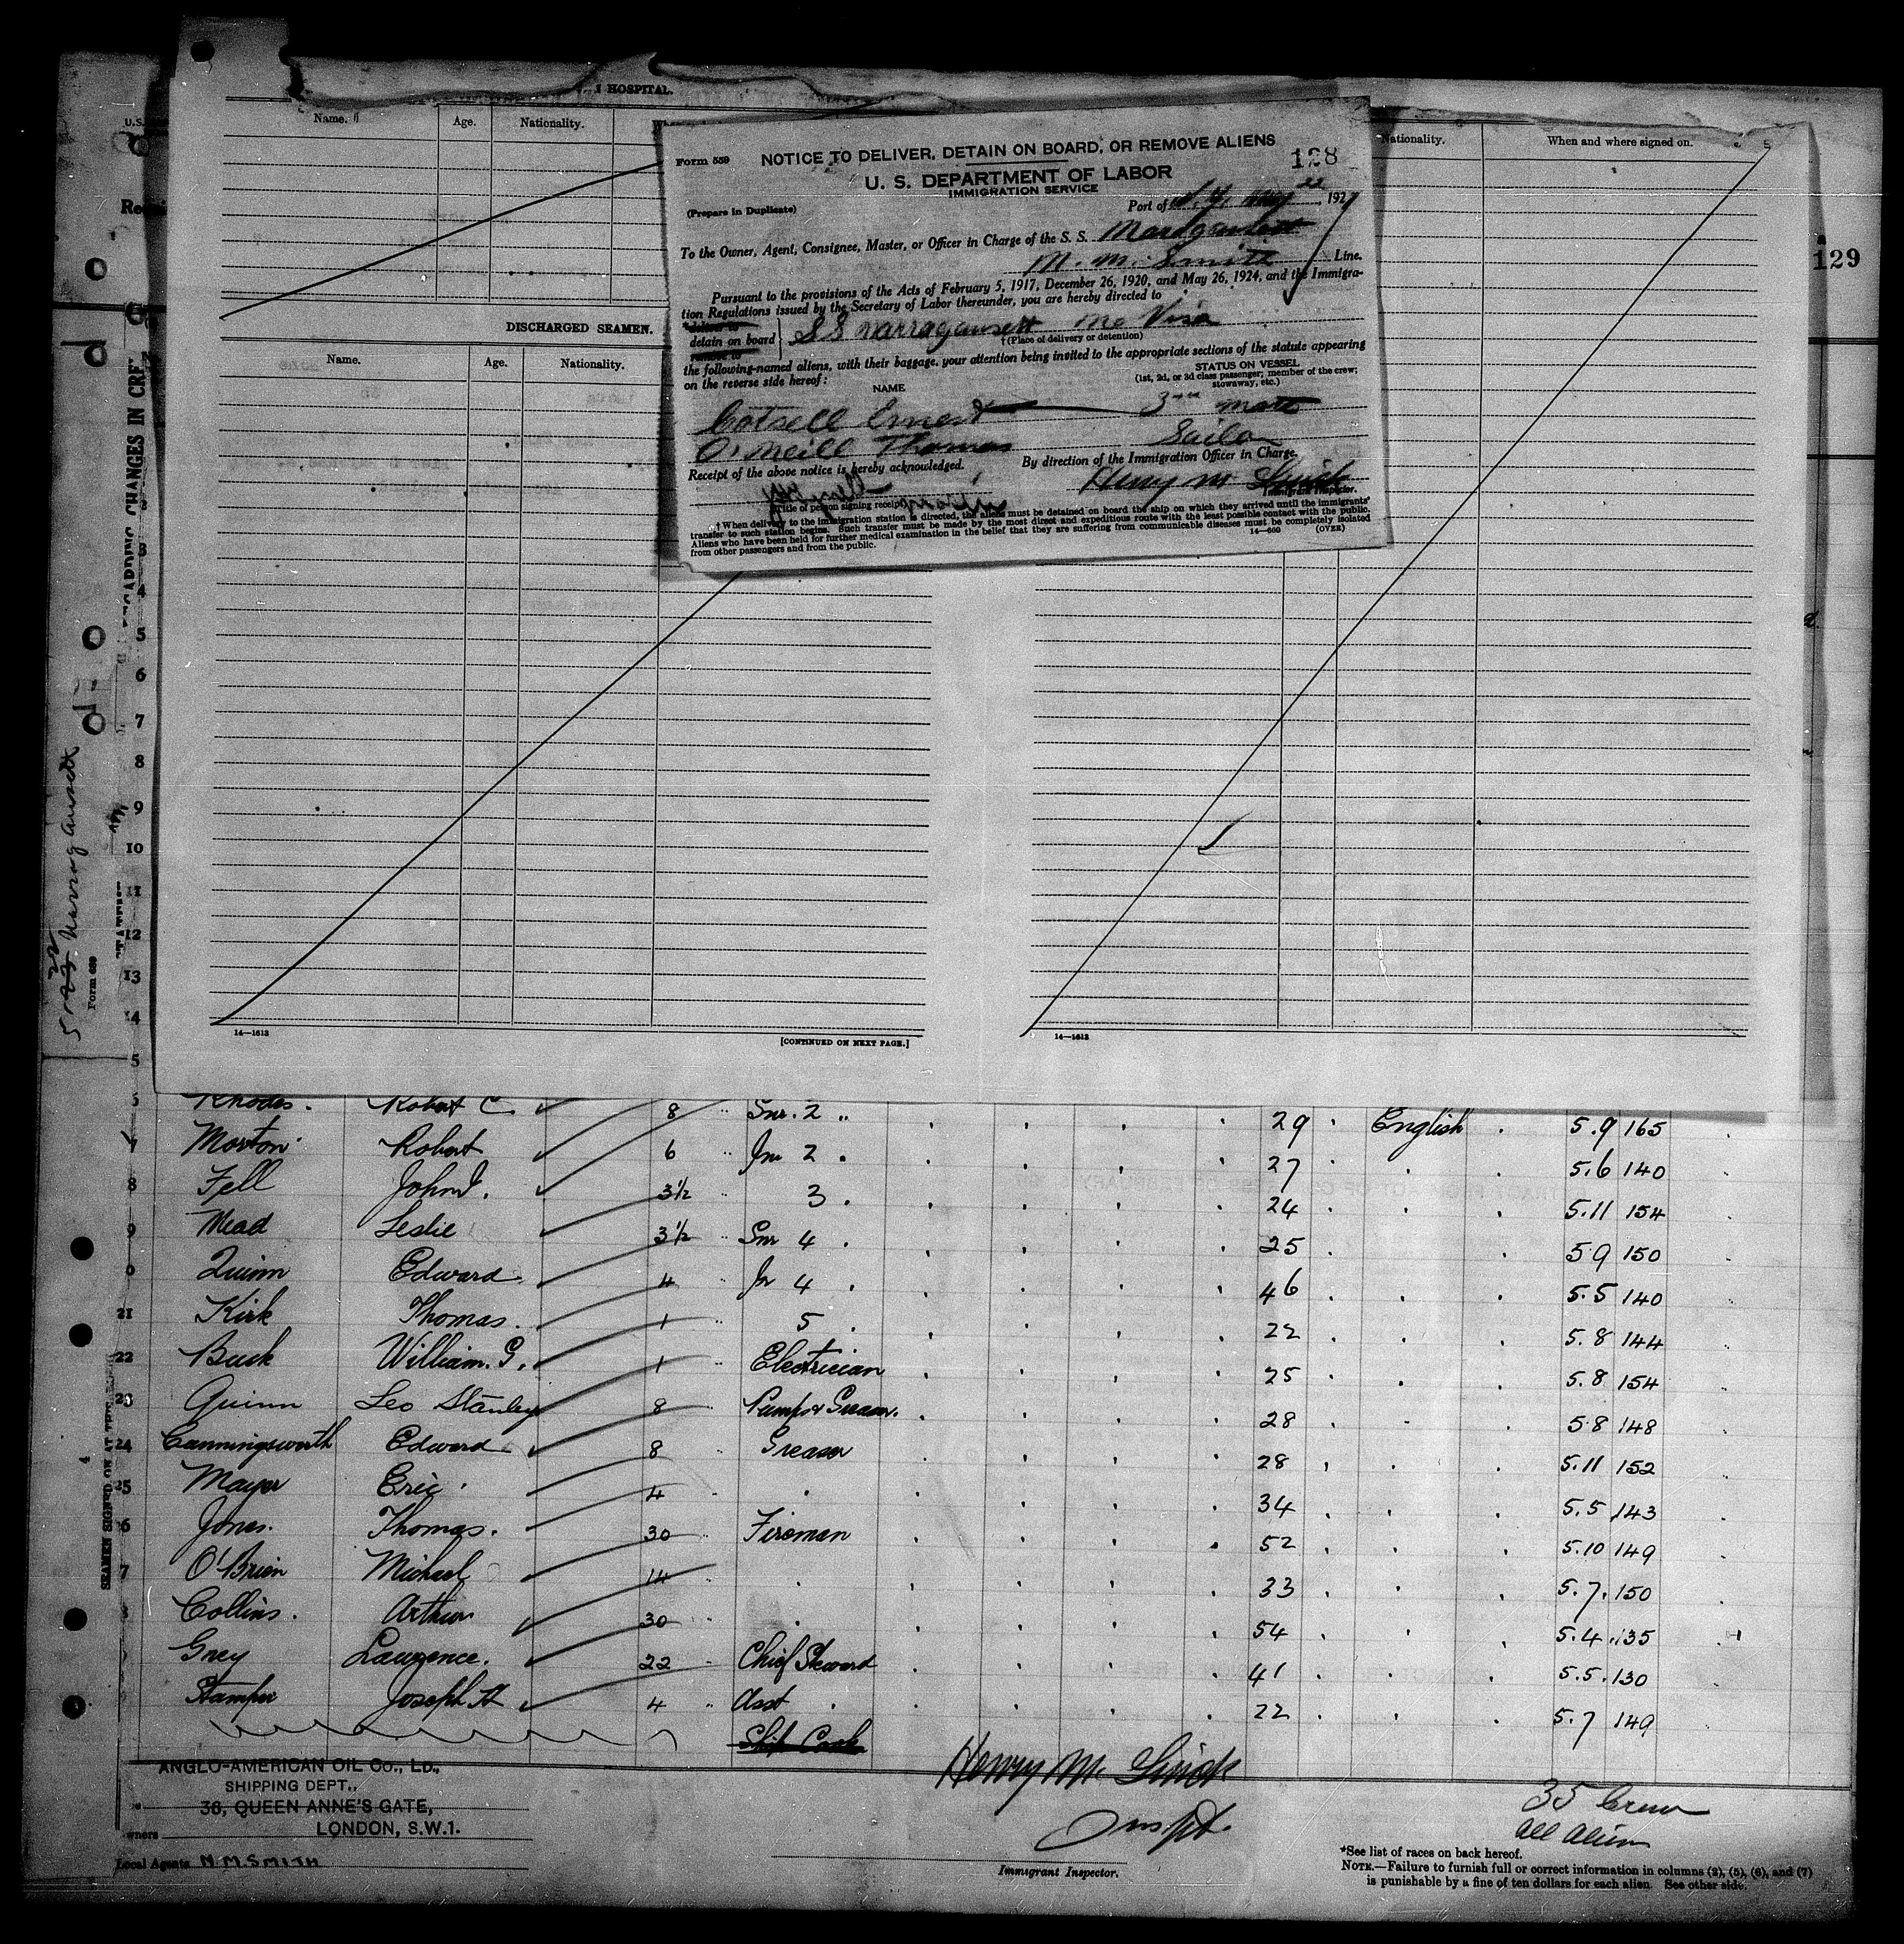 HOSPITAL.
Name. Age. Nationality.
Nationality. When and where signed on.
DISCHARGED SEAMEN.
Name. Age. Nationality.
Form 559 NOTICE TO DELIVER, DETAIN ON BOARD, OR REMOVE ALIENS 128
U. S. DEPARTMENT OF LABOR
IMMIGRATION SERVICE
(Prepare in Duplicate)
Port of N.Y. May 22, 1927
To the Owner, Agent, Consignee, Master, or Officer in Charge of the S. S. Narragansett
M. M. Smith Line.
Pursuant to the provisions of the Acts of February 5, 1917, December 26, 1920, and May 26, 1924, and the Immigra-
tion Regulations issued by the Secretary of Labor thereunder, you are hereby directed to
deliver to
detain on board SS Narragansett no Visa
remove to †(Place of delivery or detention)
the following-named aliens, with their baggage, your attention being invited to the appropriate sections of the statute appearing
on the reverse side hereof:
NAME
STATUS ON VESSEL
(1st, 2d, or 3d class passenger; member of the crew;
stowaway, etc.)
Cotsell Ernest 3rd mate
O'Neill Thomas Sailor
Receipt of the above notice is hereby acknowledged.
By direction of the Immigration Officer in Charge.
Henry M
Immigrant Inspector.
(Title of person signing receipt)
†When delivery to the immigration station is directed, the aliens must be detained on board the ship on which they arrived until the immigrants'
transfer to such station begins. Such transfer must be made by the most direct and expeditious route with the least possible contact with the public.
Aliens who have been held for further medical examination in the belief that they are suffering from communicable diseases must be completely isolated
from other passengers and from the public.
14—600 (OVER)
129
REGARDING CHANGES IN CREW
Narragansett
Form 689
3
4
5
6
7
8
9
10
11
12
13
14
5
14—1612 [CONTINUED ON NEXT PAGE.]
14—1612
Rhodes. Robert C. 8 Snr. 2 29 English 5.9 165
7 Morton Robert 6 Jnr 2 27 5.6 140
8 Fell John J. 3½ 3 24 5.11 154
9 Mead Leslie 3½ Snr 4 25 5.9 150
0 Quinn Edward 4 Jr 4 46 5.5 140
21 Kirk Thomas 1 5 22 5.8 144
22 Buck William. G. 1 Electrician 25 5.8 154
23 Quinn Leo Stanley 8 Pump & Greaser. 28 5.8 148
24 Canningsworth Edward 8 Greaser 28 5.11 152
25 Mayer Eric 4 34 5.5 143
26 Jones. Thomas. 30 Fireman 52 5.10 149
7 O'Brien Michael 14 33 5.7. 150
8 Collins. Arthur 30 54 5.4 135
Grey Lawrence. 22 Chief Steward 41 5.5. 130
Stamper Joseph H 4 Asst 22 5.7 149
Ship Cook
SEAMEN SIGNED ON AT
ANGLO-AMERICAN OIL CO., LD.,
SHIPPING DEPT.,
36, QUEEN ANNE'S GATE,
LONDON, S.W.1.
Owners
Local Agents M. M. SMITH
Henry M.
Inspt.
Immigrant Inspector.
35 Crew
All Alien
*See list of races on back hereof.
NOTE.—Failure to furnish full or correct information in columns (2), (5), (6), and (7)
is punishable by a fine of ten dollars for each alien. See other side.